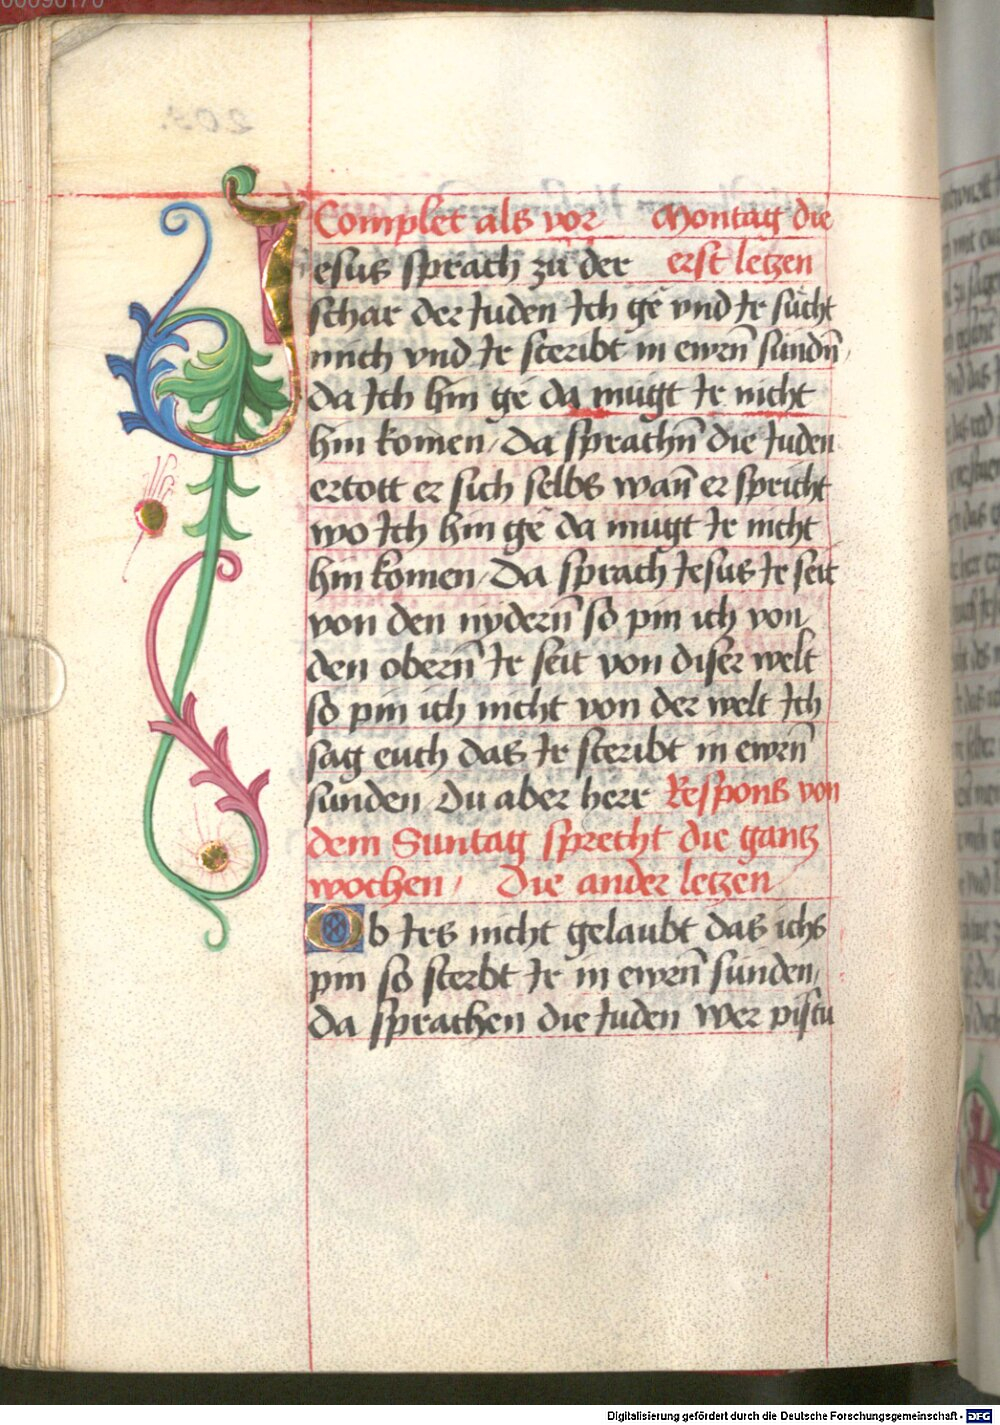 Complet als vor Montag die
Jesus sprach zu der erst letzen
schar der Juden Ich gē vnd Ir sücht
mich vnd Ir steribt in ewrn̄ sündn̄
da Ich hin gē da mügt Ir nicht
hin komen / Da sprachn̄ die Juden
ertott er sich selbs wan̄ er spricht
wo Ich hin gē da mugt Ir nicht
hin komen / Da sprach Jesus Ir seit
von den nydern̄ so pin ich von
den obern̄ Ir seit von diser welt
so pin ich nicht von der welt Ich
sag euch das Ir steribt in ewrn̄
sunden / Du aber herr Respons von
dem Suntag sprecht die gantz
wochen / Die ander letzen
Ob Irs nicht gelaubt das ichs
pin so sterbt Ir in ewrn̄ sunden /
da sprachen die Juden wer pistu
Digitalisierung gefördert durch die Deutsche Forschungsgemeinschaft - DFG